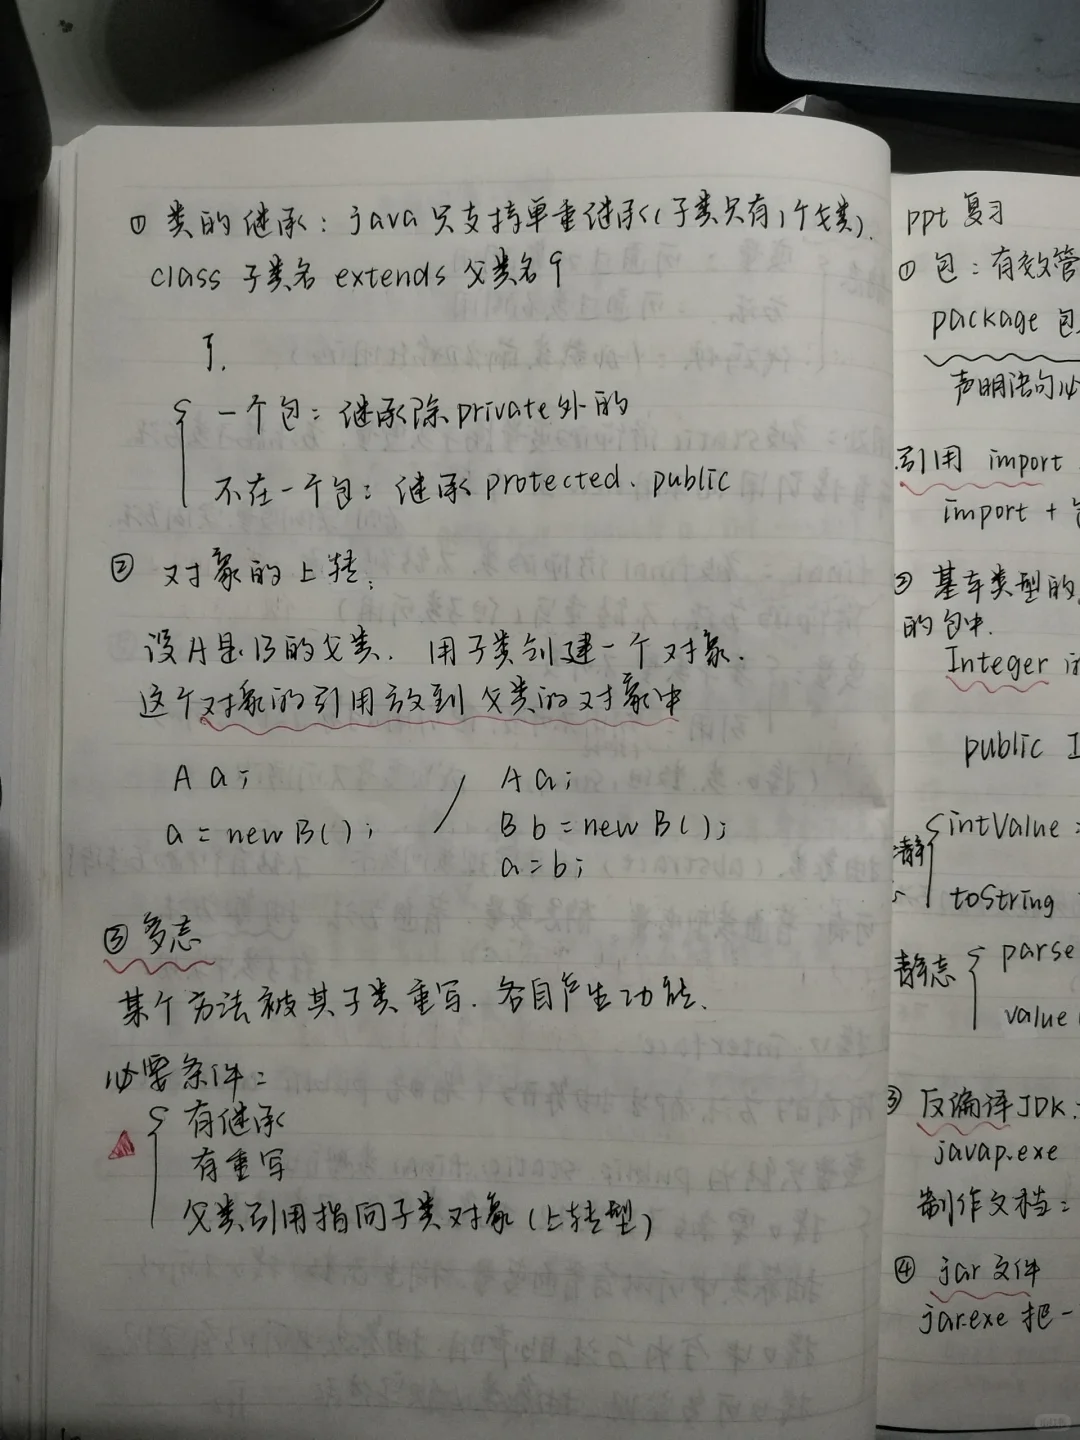 ① 类的继承：java只支持单重继承(子类只有1个父类).
class 子类名 extends 父类名{
}.
一个包：继承除private外的
不在一个包：继承protected、public
② 对象的上转：
设A是B的父类. 用子类创建一个对象.
这个对象的引用放到父类的对象中
A a; / A a;
a = new B(); B b = new B();
a = b;
③ 多态
某个方法被其子类重写. 各自产生功能.
必要条件：
有继承
有重写
父类引用指向子类对象(上转型)
ppt复习
① 包：有效管
package 包
声明语句必
引用 import
import +
② 基本类型的
的包中.
Integer
public I
intValue
toString
静态
parse
value
③ 反编译JDK
javap.exe
制作文档：
④ jar文件
jar.exe 把一